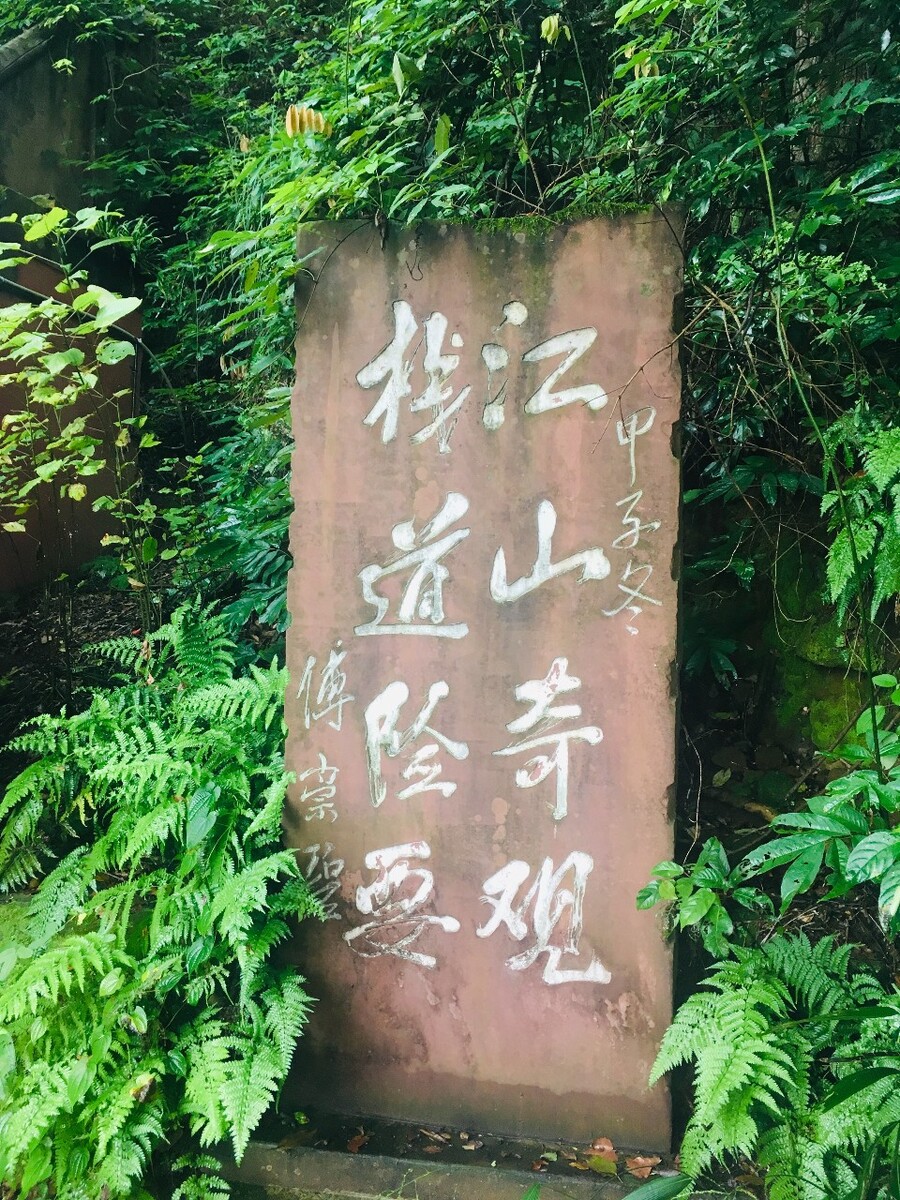 甲子冬
江山奇观
栈道险要
傅崇